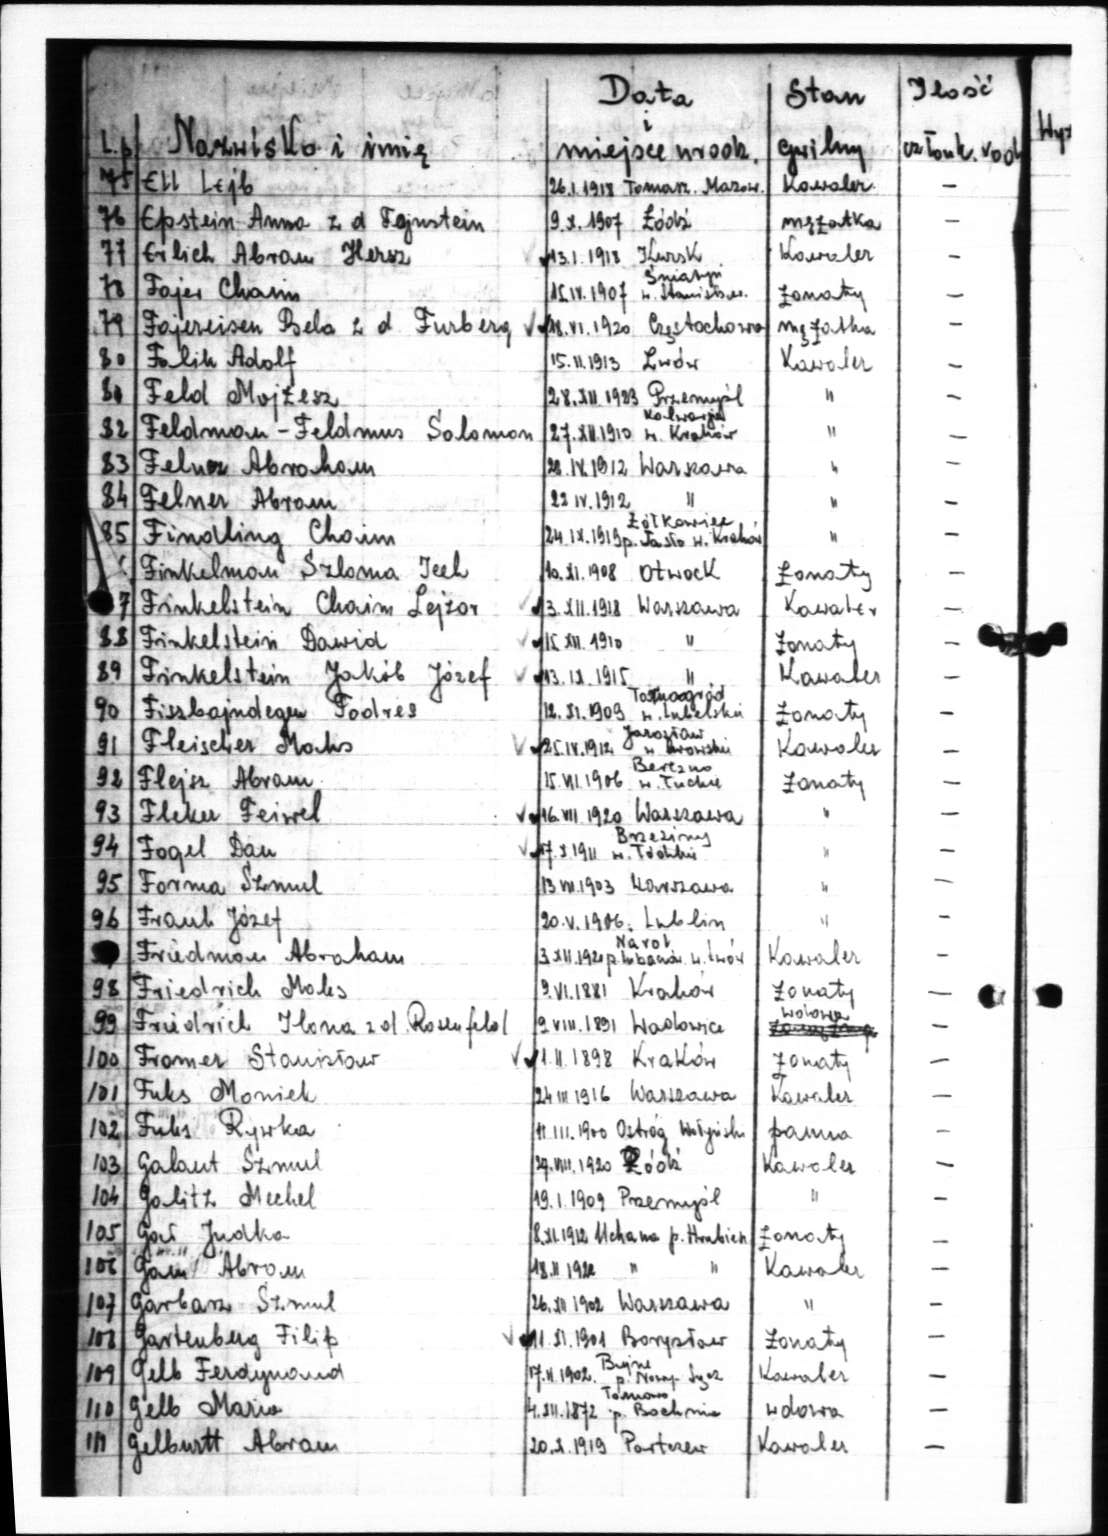 L.p. Nazwisko i imię Data i miejsce urodz. Stan cywilny Ilość członk. rodz. Wyz
75 Ell Lejb 26.I.1918 Tomasz. Mazow. Kawaler —
76 Epstein Anna z d Fajnstein 9.X.1907 Łódź mężatka —
77 Erlich Abram Hersz 13.I.1918 Kursk Kawaler —
78 Fajer Chaim 15.IV.1907 Śniatyń w. Stanisław. żonaty —
79 Fajereisen Bela z d Furberg 18.VI.1920 Częstochowa mężatka —
80 Falik Adolf 15.II.1913 Lwów Kawaler —
81 Feld Mojżesz 28.XII.1923 Przemyśl " —
82 Feldman - Feldmus Salomon 27.XII.1910 Kalwarja w. Kraków " —
83 Felner Abraham 22.IV.1912 Warszawa " —
84 Felner Abram 22 IV.1912 " " —
85 Findling Chaim 24.IX.1919 p. Jasło w. Kraków " —
Finkelman Szloma Icek 10.XI.1908 Otwock żonaty —
7 Finkelstein Chaim Lejzor 3.XII.1918 Warszawa Kawaler —
88 Finkelstein Dawid 15.XII.1910 " żonaty —
89 Finkelstein Jakób Józef 13.IX.1915 " Kawaler —
90 Fiszbajndegen Fodres 12.XI.1909 w. Lubelski żonaty —
91 Fleischer Maks 25.IV.1912 Jarosław w Lwowski Kawaler —
92 Flejsz Abram 15.VI.1906 Berezno w. Łuck żonaty —
93 Fleker Feiwel 16.VII 1920 Warszawa " —
94 Fogel Dan 17.X.1911 Brzeziny w. Łódzkie " —
95 Forma Szmul 13 VIII.1903 Warszawa " —
96 Fraub Józef 20.V.1906. Lublin " —
Friedman Abraham 3.XII.1920 Narol p. Lubaczów w. Lwów Kawaler —
98 Friedrich Maks 9.VI.1881 Kraków żonaty —
99 Friedrich Ilona z d. Rosenfeld 9.VIII.1891 Wadowice wdowa —
100 Fromer Stanisław 1.II.1898 Kraków żonaty —
101 Fuks Moniek 24 III 1916 Warszawa Kawaler —
102 Fuks Rywka 11.III.1900 Ostróg Wołyński panna —
103 Galant Szmul 27.VIII.1920 Łódź Kawaler —
104 Galitz Mechel 19.I.1909 Przemyśl " —
105 Gał Judka 8.XI.1912 Uchana p. Hrubiesz żonaty —
106 Abram 18.II " " Kawaler —
107 Garbarz Szmul 26.XII 1902 Warszawa " —
108 Gartenberg Filip 11.XI.1901 Borysław żonaty —
109 Gelb Ferdynand 17.II.1902. p. Nowy Sącz Kawaler —
110 Gelb Maria 4.XII.1872 p. Bochnia wdowa —
111 Gelburtt Abram 20.X.1919 Parczew Kawaler —